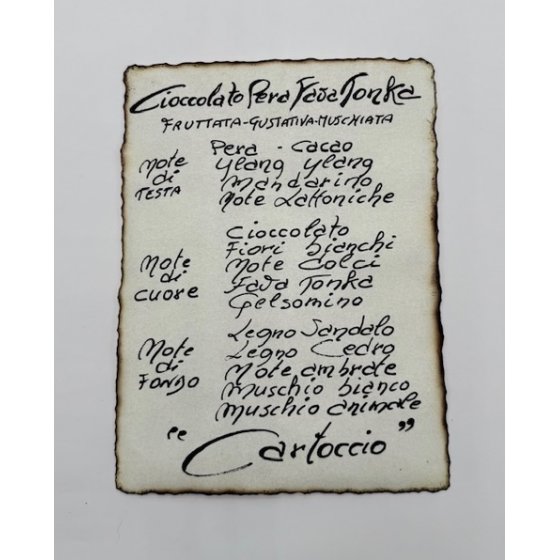 Cioccolato Pera Fava Tonka
FRUTTATA-GUSTATIVA-MUSCHIATA
Note di TESTA
Pera - Cacao
Ylang Ylang
Mandarino
Note Lattoniche
Note di CUORE
Cioccolato
Fiori bianchi
Note dolci
Fava Tonka
Gelsomino
Note di FONDO
Legno Sandalo
Legno Cedro
Note ambrate
Muschio bianco
Muschio animale
"Cartoccio"